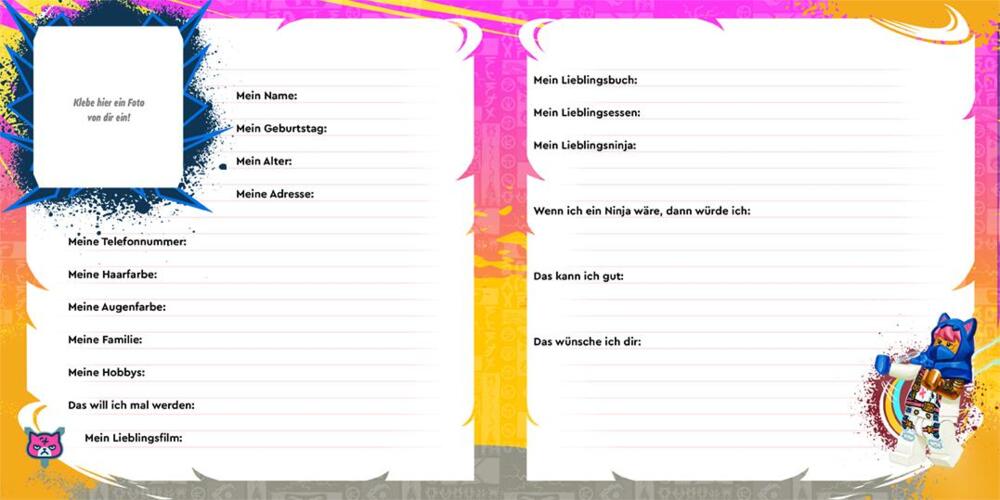 Klebe hier ein Foto
von dir ein!
Mein Name:
Mein Geburtstag:
Mein Alter:
Meine Adresse:
Meine Telefonnummer:
Meine Haarfarbe:
Meine Augenfarbe:
Meine Familie:
Meine Hobbys:
Das will ich mal werden:
Mein Lieblingsfilm:
Mein Lieblingsbuch:
Mein Lieblingsessen:
Mein Lieblingsninja:
Wenn ich ein Ninja wäre, dann würde ich:
Das kann ich gut:
Das wünsche ich dir: